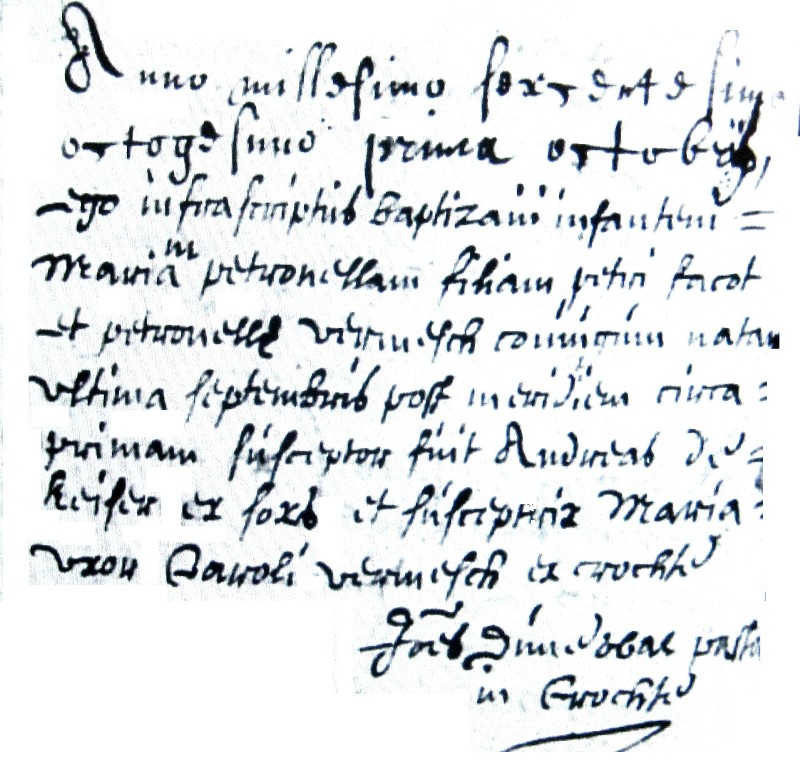 Anno millesimo sexcentesimo
octogesimo prima octobris,
ego infrascriptus baptizavi infantem =
Mariam petronellam filiam petri Jacot
et petronelle vermesch coniugum natam
ultima septembris post meridiem circa =
primam susceptor fuit Andreas de =
keiser ex soxs et susceptrix Maria =
uxor Caroli vermesch ex crochte
Joes pastor
in Crochte